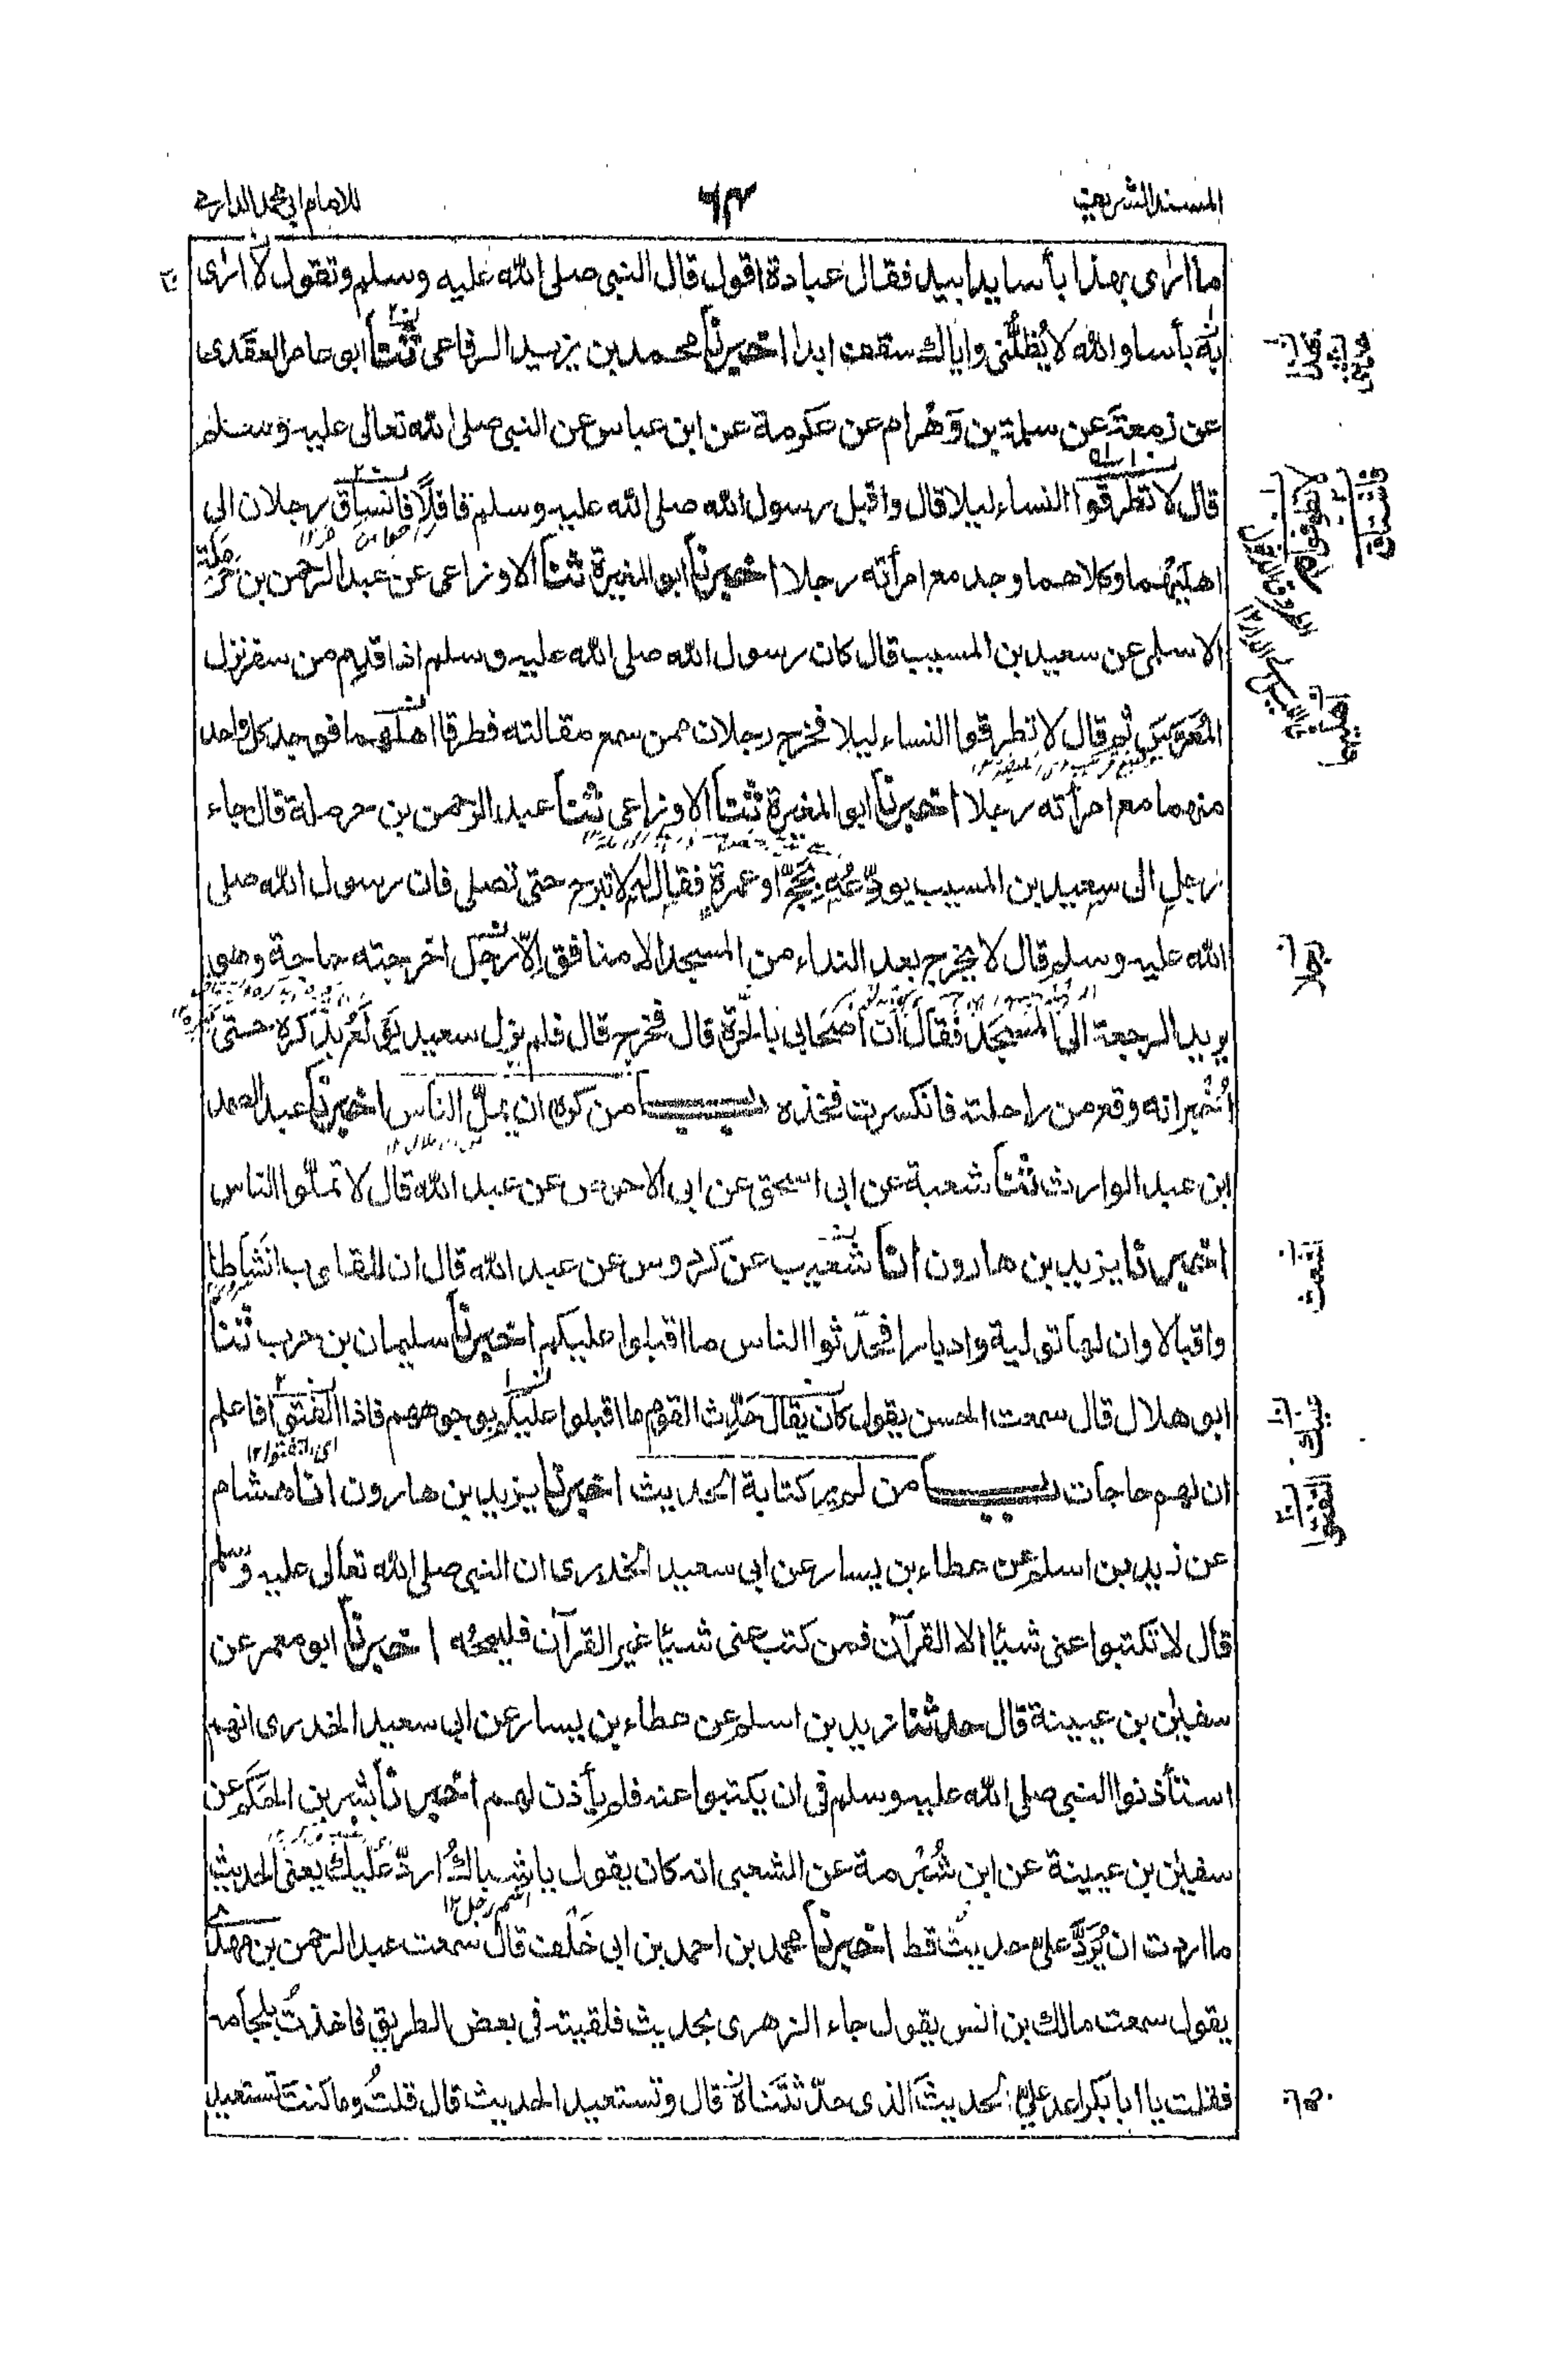 المسند الشريف
٦٣
للامام ابي محمد الدارمي
ما ارى بهذا بأسا يدا بيد فقال عبادة اقول قال النبي صلى الله عليه وسلم وتقول لا ارى
به بأسا والله لا يُظلُّني واياك سقف ابدا اخبرنا محمد بن يزيد الرفاعى ثنا ابو عامر العقدى
عن زمعة عن سلمة بن وَهْرام عن عكرمة عن ابن عباس عن النبي صلى الله تعالى عليه وسلم
قال لا تطرقوا النساء ليلا قال واقبل رسول الله صلى الله عليه وسلم قافلًا فانساق رجلان الى
اهليهما وكلاهما وجد مع امرأته رجلا اخبرنا ابو المغيرة ثنا الاوزاعى عن عبد الرحمن بن حرملة
الاسلمى عن سعيد بن المسيب قال كان رسول الله صلى الله عليه وسلم اذا قدم من سفر نزل
المُعَرَّس ثم قال لا تطرقوا النساء ليلا فخرج رجلان ممن سمع مقالته فطرقا اهلهما فوجد كل واحد
منهما مع امرأته رجلا اخبرنا ابو المغيرة ثنا الاوزاعى ثنا عبد الرحمن بن حرملة قال جاء
رجل الى سعيد بن المسيب يودّعه بحجّ او عمرة فقال له لا تبرح حتى تصلى فان رسول الله صلى
الله عليه وسلم قال لا يخرج بعد النداء من المسجد الا منافق الّا رجل اخرجته حاجة وهو
يريد الرجعة الى المسجد فقال ان اصحابى بالحرّة قال فخرج قال فلم يزل سعيد يَوْلَعُ بذكره حتى
اُخْبِر انه وقع من راحلته فانكسرت فخذه باب من كره ان يملّ الناس اخبرنا عبد الصمد
ابن عبد الوارث ثنا شعبة عن ابى اسحق عن ابى الاحوص عن عبد الله قال لا تملّوا الناس
اخبرنا يزيد بن هارون انا شعيب عن كردوس عن عبد الله قال ان للقلوب انشاطا
واقبالا وان لها تولية وادبارا فحدّثوا الناس ما اقبلوا عليكم اخبرنا سليمان بن حرب ثنا
ابو هلال قال سمعت الحسن يقول كان يقال حَدِّث القوم ما اقبلوا عليك بوجوههم فاذا التفتوا فاعلم
ان لهم حاجات باب من لم ير كتابة الحديث اخبرنا يزيد بن هارون انا هشام
عن زيد بن اسلم عن عطاء بن يسار عن ابى سعيد الخدرى ان النبي صلى الله تعالى عليه وسلم
قال لا تكتبوا عنى شيئا الا القرآن فمن كتب عنى شيئا غير القرآن فليمحُه اخبرنا ابو معمر عن
سفيٰن بن عيينة قال حدثنا زيد بن اسلم عن عطاء بن يسار عن ابى سعيد الخدرى انهم
استأذنوا النبي صلى الله عليه وسلم فى ان يكتبوا عنه فلم يأذن لهم اخبرنا بشر بن الحَكَم عن
سفيٰن بن عيينة عن ابن شُبْرمة عن الشعبى انه كان يقول يا شباكُ اردّ عليك يعنى الحديث
اسم رجل ١٢
ما اردت ان يُرَدَّ علىّ حديث قط اخبرنا محمد بن احمد بن ابى خَلَف قال سمعت عبد الرحمن بن مهدى
يقول سمعت مالك بن انس يقول جاء الزهرى بحديث فلقيته فى بعض الطريق فاخذتُ بلجامه
فقلت يا ابا بكر اعد علىّ الحديث الذى حدّثتناه قال وتستعيد الحديث قال قلتُ وما كنتَ تستعيد